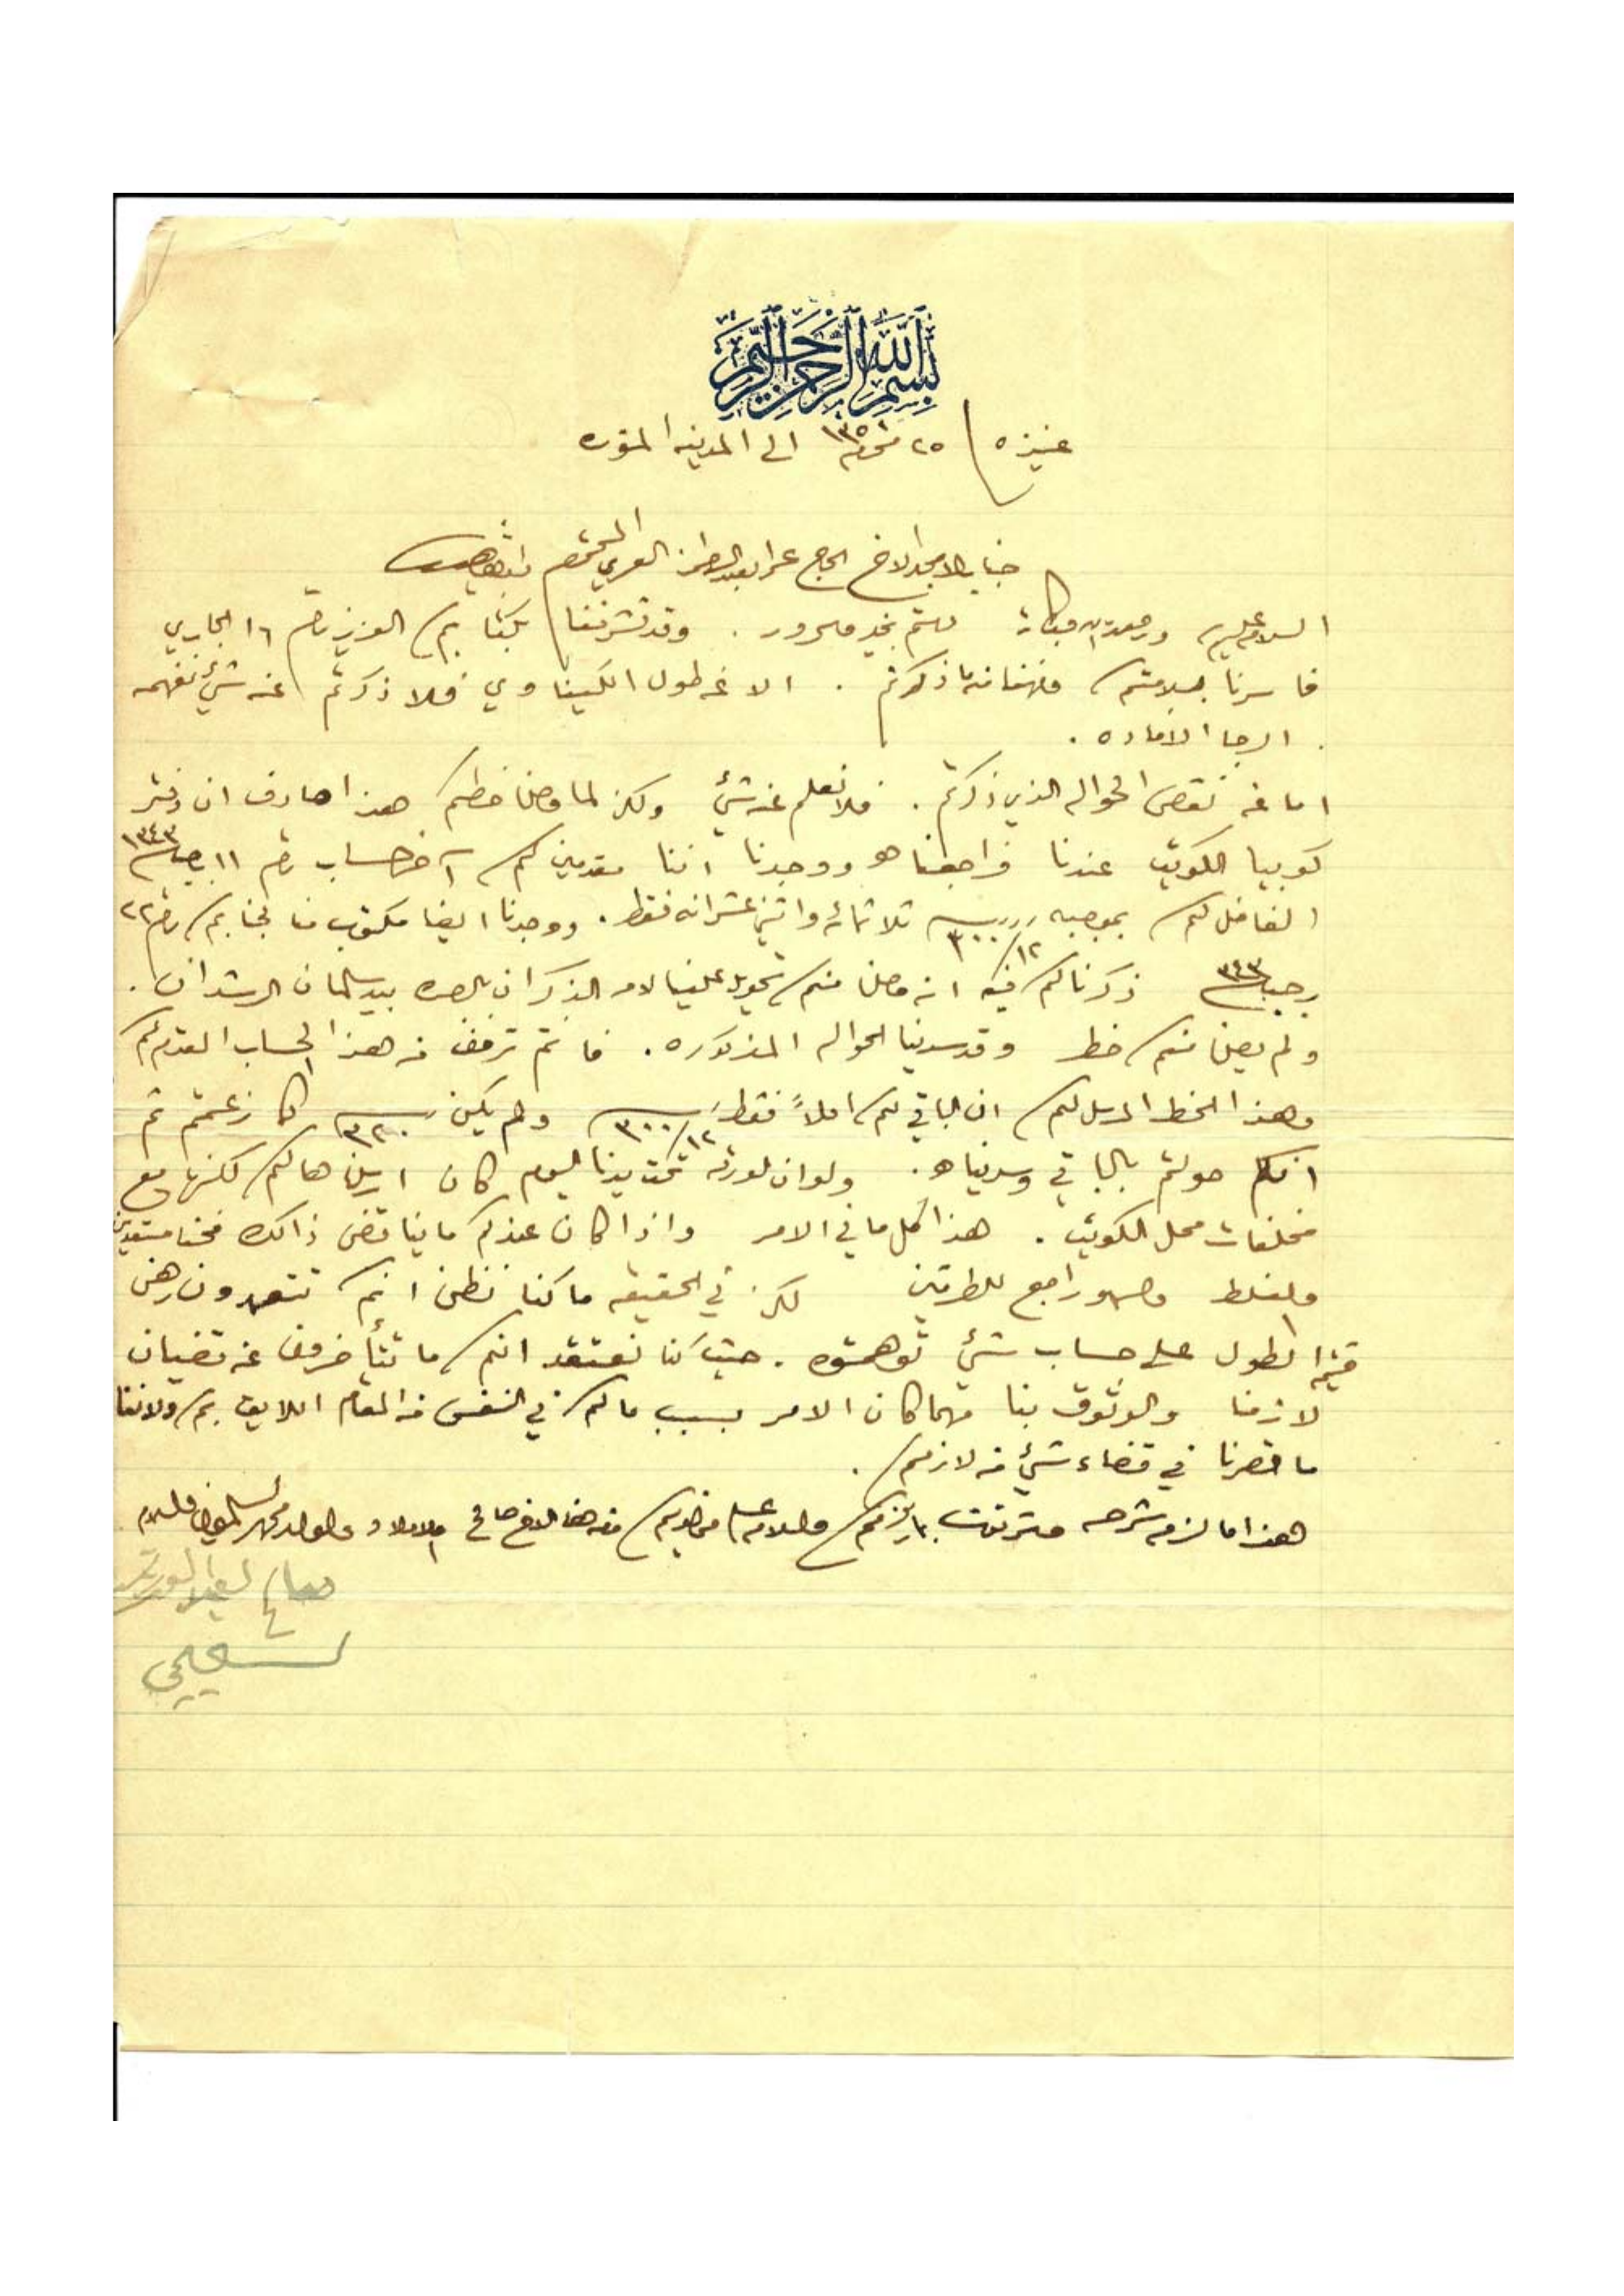 بسم الله الرحمن الرحيم
عنيزه / ٢٥ محرم ١٣٥١ الى المدينه المنوره
جناب الامجد الاخ الحاج المحترم
السلام عليكم ورحمة الله وبركاته دمتم بخير وسرور . وقد تشرفنا بكتابكم العزيز رقم ١٦ الجاري
فاسرنا بسلامتكم وفهمنا ما ذكرتم . الا عن طول الكيناوي فلا ذكرتم عنه شيء نفهمه
. الرجا الافاده .
اما عن نقص الحواله الذي ذكرتم . فلا نعلم عنه شيء ولكن لما وصلنا خطكم هذا صادف ان دفتر
كوبيا الكويت عندنا فراجعناهو ووجدنا اننا مقدمين لكم آخر حساب رقم ١١ رجب ١٣٤٣
الفاضل لكم بموجبه ٣٠٠/١٢ ثلاثمائه واثني عشر انه فقط . ووجدنا ايضا مكتوب منا لجنابكم رقم ٢٢
رجب ٣٤٣ ذكرنا لكم فيه انه وصلنا منكم تحويل علينا لامر الذكران بالبصره بيد سلمان الرشدان .
ولم يصلنا منكم خط وقد سدينا الحواله المذكوره . فانتم ترفق من هذا الحساب المقدم لكم
وهذا الخط المرسل لكم ان الباقي لكم اصلاً فقط ٣٠٠/١٢ ولم يكن ٣٢٠ كما زعمتم ثم
انكم حولتم بالباقي وسديناه . ولو ان لورقه تحت يدنا اليوم كان ارسلناها لكم لكنها مع
مخلفات محل الكويت . هذا كل ما في الامر واذا كان عندكم ما يناقض ذالك فنحنا مستعدين
والغلط وسهو راجع للطرفين لكن في الحقيقه ما كنا نظن انكم تتعمدون رهن
قيمة الطول على حساب شيء توهمتوه . حيث كنا نعتقد انكم ما تتأخرون عن قضيان
لازمنا والوثوق بنا مهما كان الامر بسبب ما لكم في النفس من المقام اللايق بكم ولاننا
ما قصرنا في قضاء شيء من لازمكم .
هذا ما لزم شرحه وشرفونا بما يلزمكم والسلام على من لديكم ومن هنا الاخ صالح والاولاد والوالد والسلام